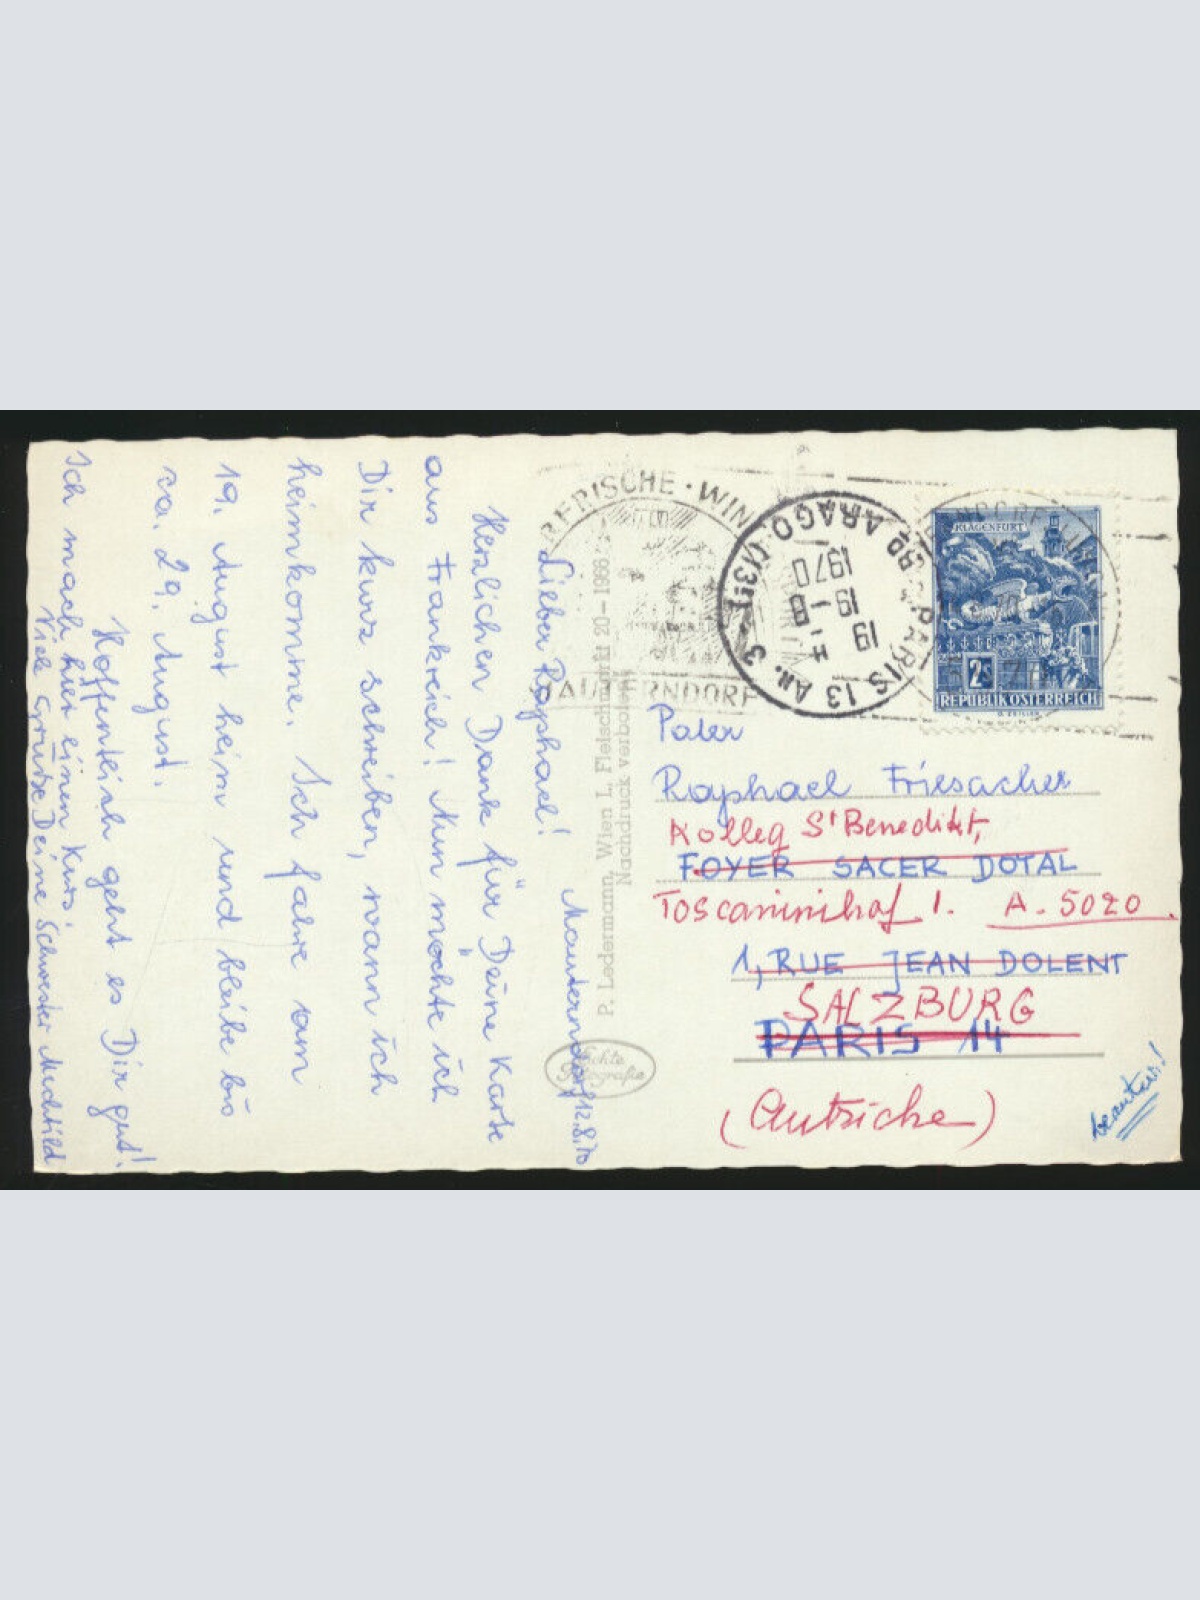 Mauterndorf 12.8.70
Lieber Raphael!
Herzlichen Dank für Deine Karte
aus Frankreich! Nun möchte ich
Dir kurz schreiben, wann ich
heimkomme. Ich fahre am
19. August heim und bleibe bis
ca. 29. August.
Hoffentlich geht es Dir gut!
Ich mach hier einen Kurs.
Viele Grüße Deine Schwester Mechthild
P. Ledermann, Wien I, Fleischmarkt 20 - 1966
Nachdruck verboten
Echte
Fotografie
MAUTERNDORF
PARIS 13 AN. 3
ARAGO (13E)
19 H
19 - 8
1970
KLAGENFURT
2S
REPUBLIK ÖSTERREICH
Pater
Raphael Friesacher
Kolleg St Benedikt,
FOYER SACER DOTAL
Toscaninihof 1. A-5020
1, RUE JEAN DOLENT
SALZBURG
PARIS 14
(Autriche)